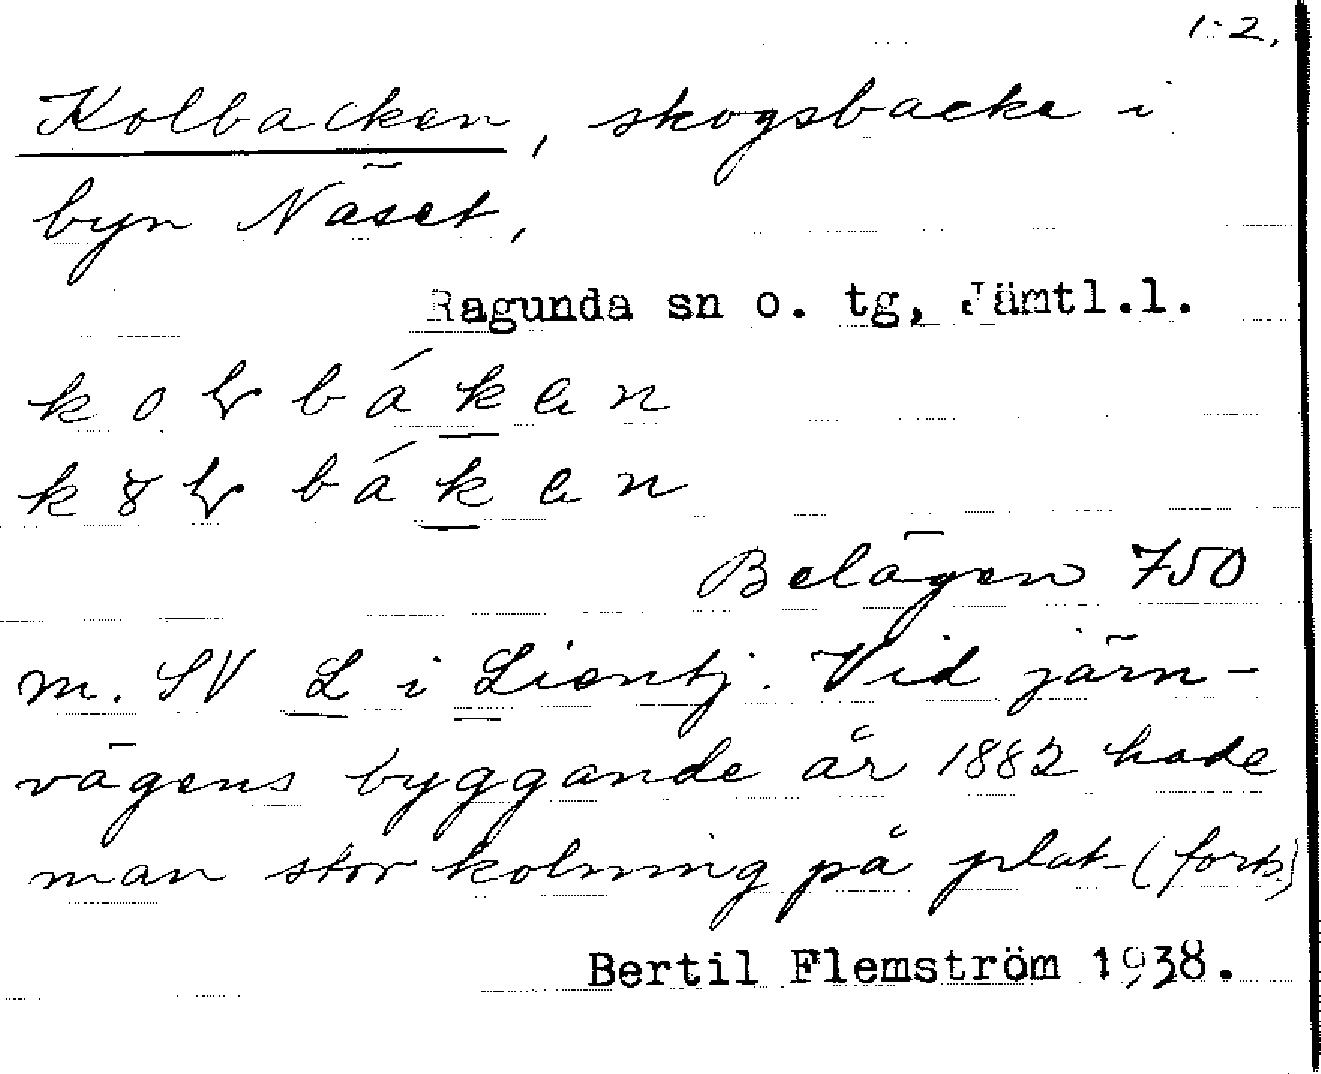 1-2.
Kolbacken, skogsbacke i
byn Näset,
Ragunda sn o. tg, Jämtl.l.
bákan
bákan
Belägen 750
m. SV L i Lientj. Vid järn-
vägens byggande år 1882 hade
man stor kolning på plat- (forts.)
Bertil Flemström 1938.